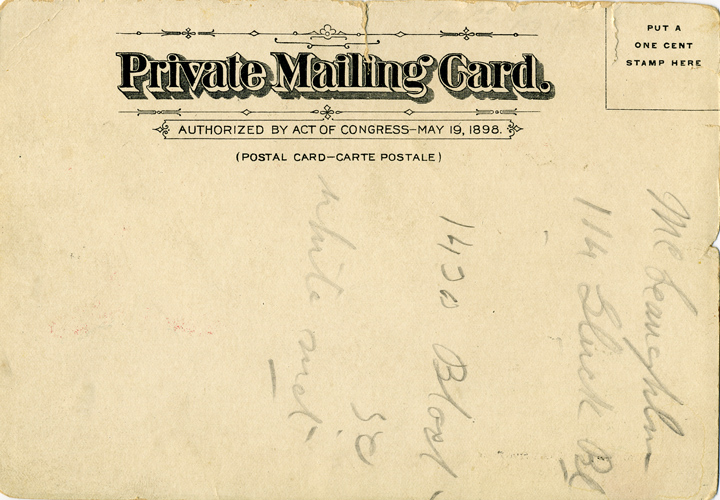 Private Mailing Card.
AUTHORIZED BY ACT OF CONGRESS—MAY 19, 1898.
(POSTAL CARD—CARTE POSTALE)
PUT A
ONE CENT
STAMP HERE
McLaughlin
114
1430
white